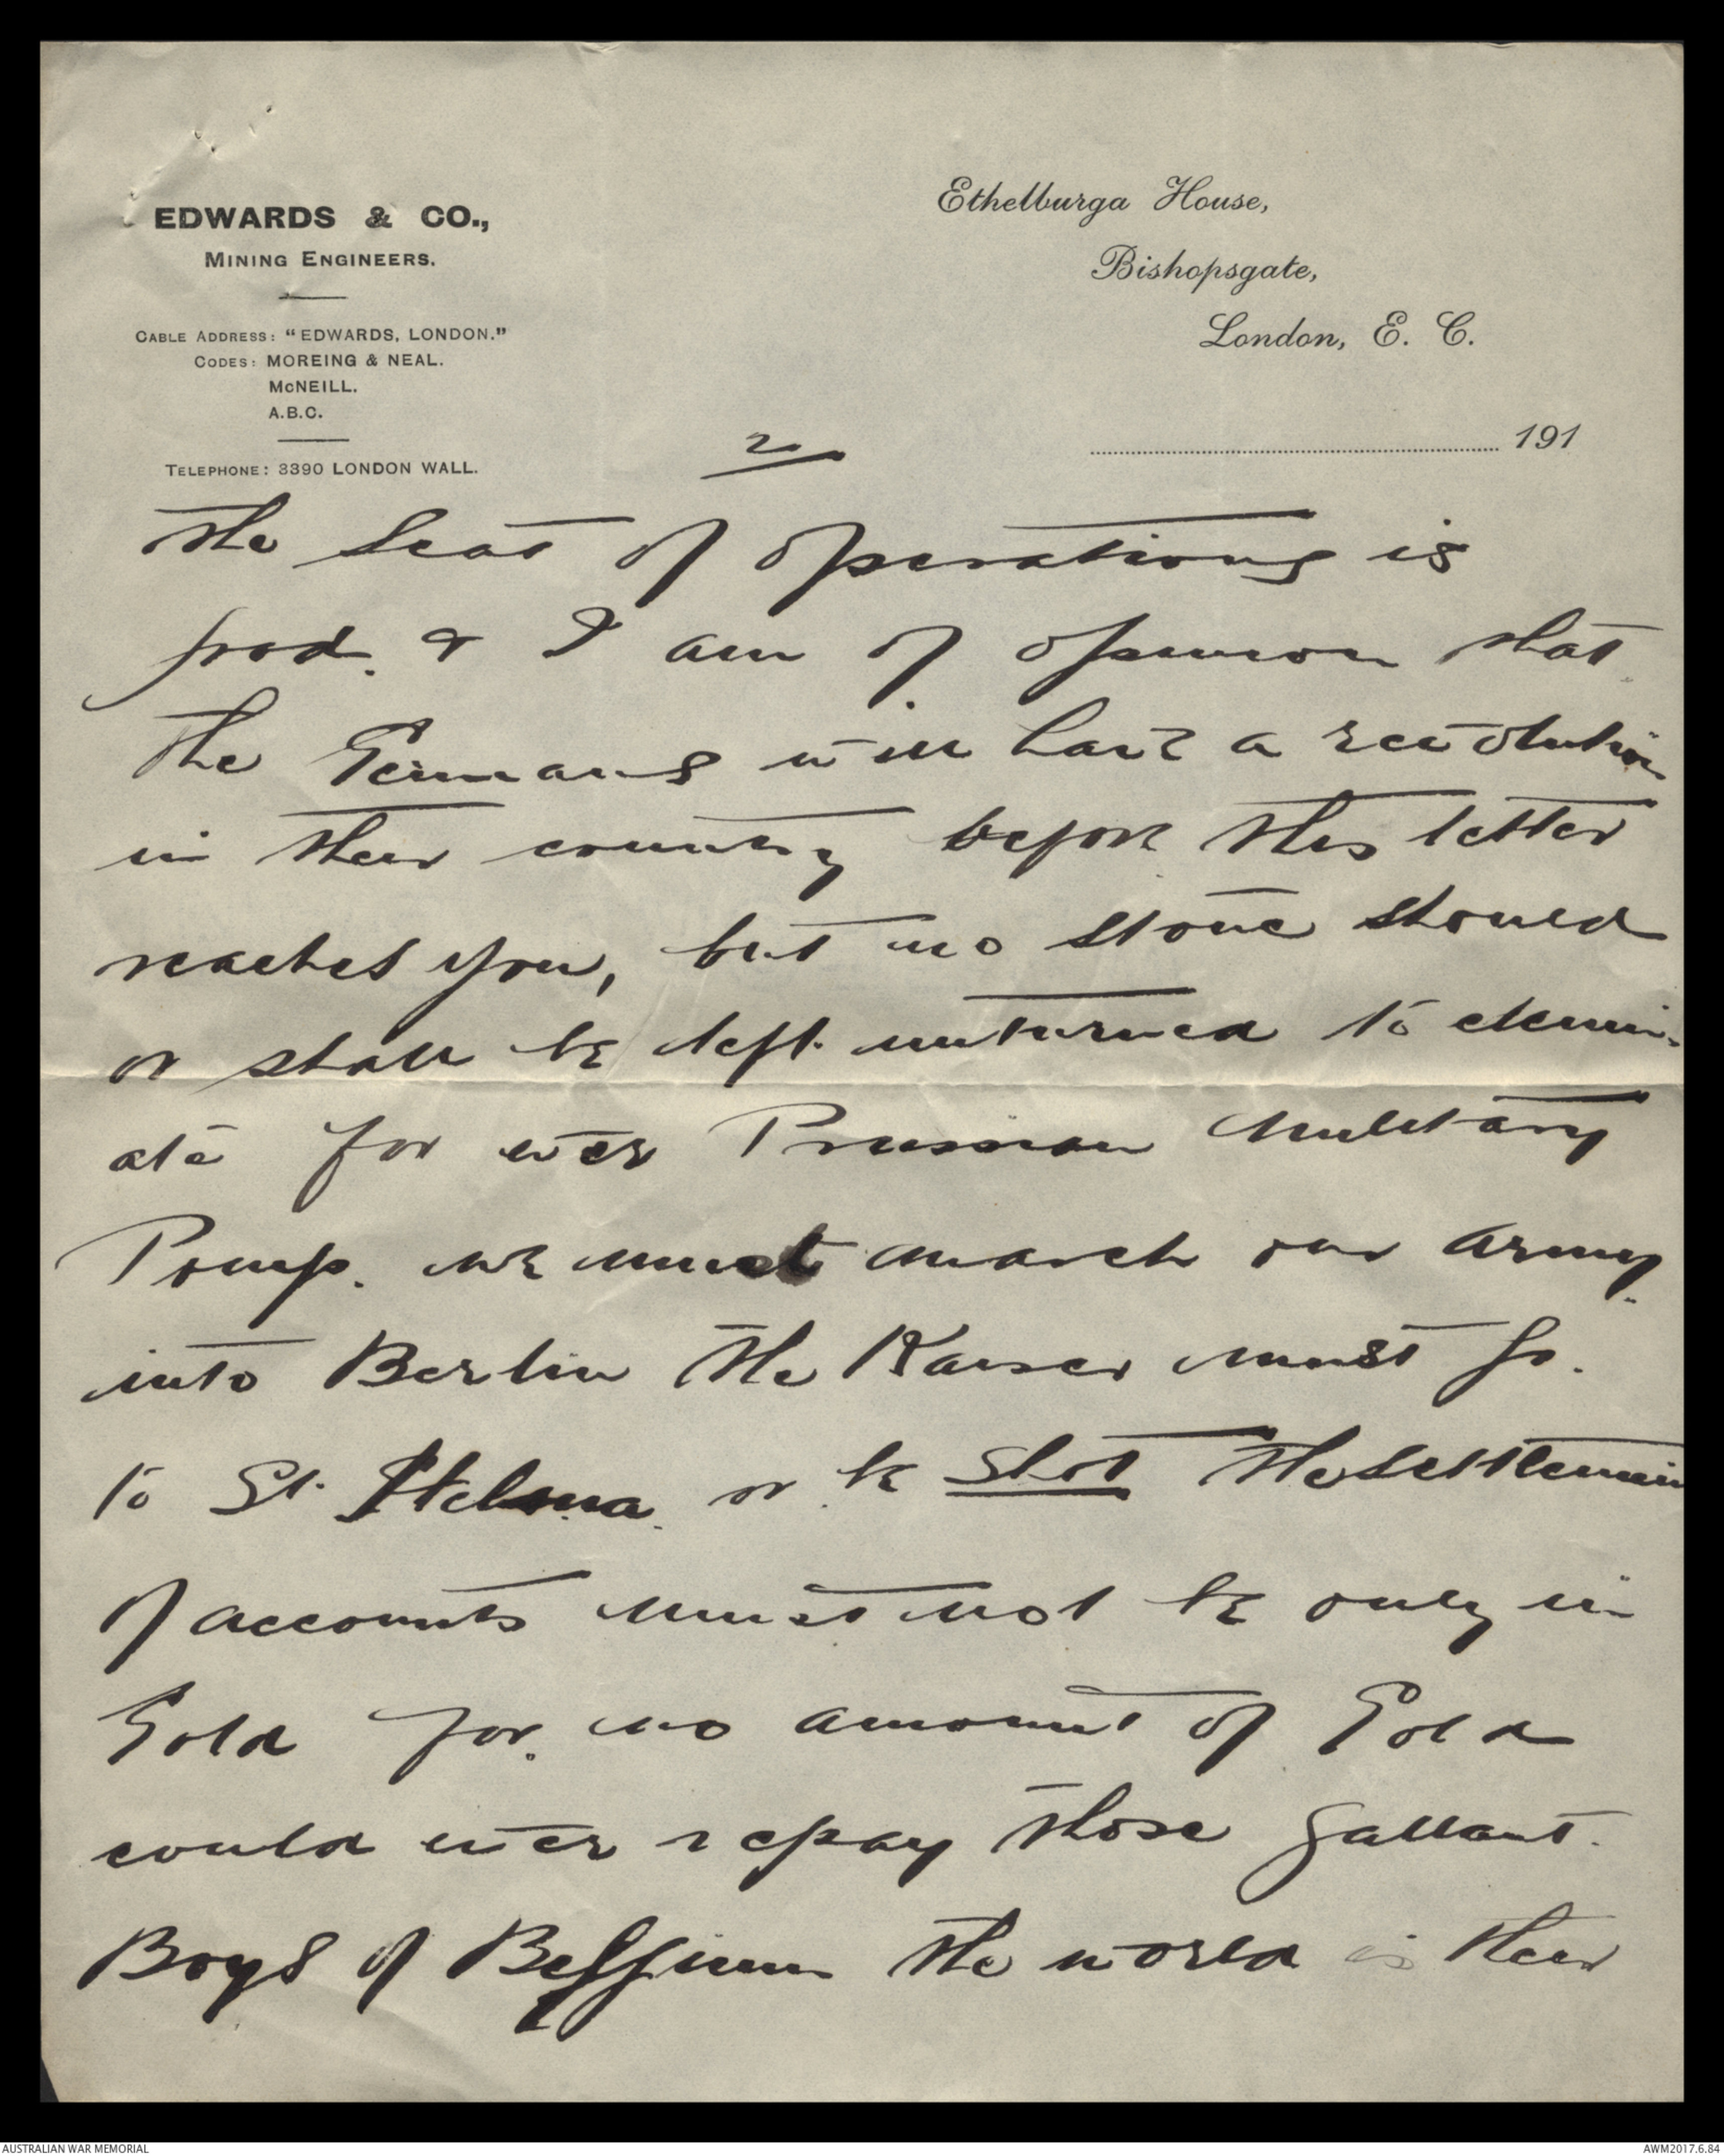 EDWARDS & CO.,
MINING ENGINEERS.
CABLE ADDRESS: "EDWARDS, LONDON."
CODES: MOREING & NEAL.
McNEILL.
A.B.C.
TELEPHONE: 3390 LONDON WALL.
Ethelburga House,
Bishopsgate,
London, E. C.
191
2
the seat of operations is
good. & I am of opinion that
the Germans will have a revolution
in their country before this letter
reaches you, but no stone should
or shall be left unturned to elemin-
ate for ever Prussian Military
Pomp. we must march our army
into Berlin the Kaiser must go.
to St. Helena. or be shot the settlement
of accounts must not be only in
Gold for no amount of Gold
could ever repay those gallant.
Boys of Belgium the world is their
AUSTRALIAN WAR MEMORIAL
AWM2017.6.84